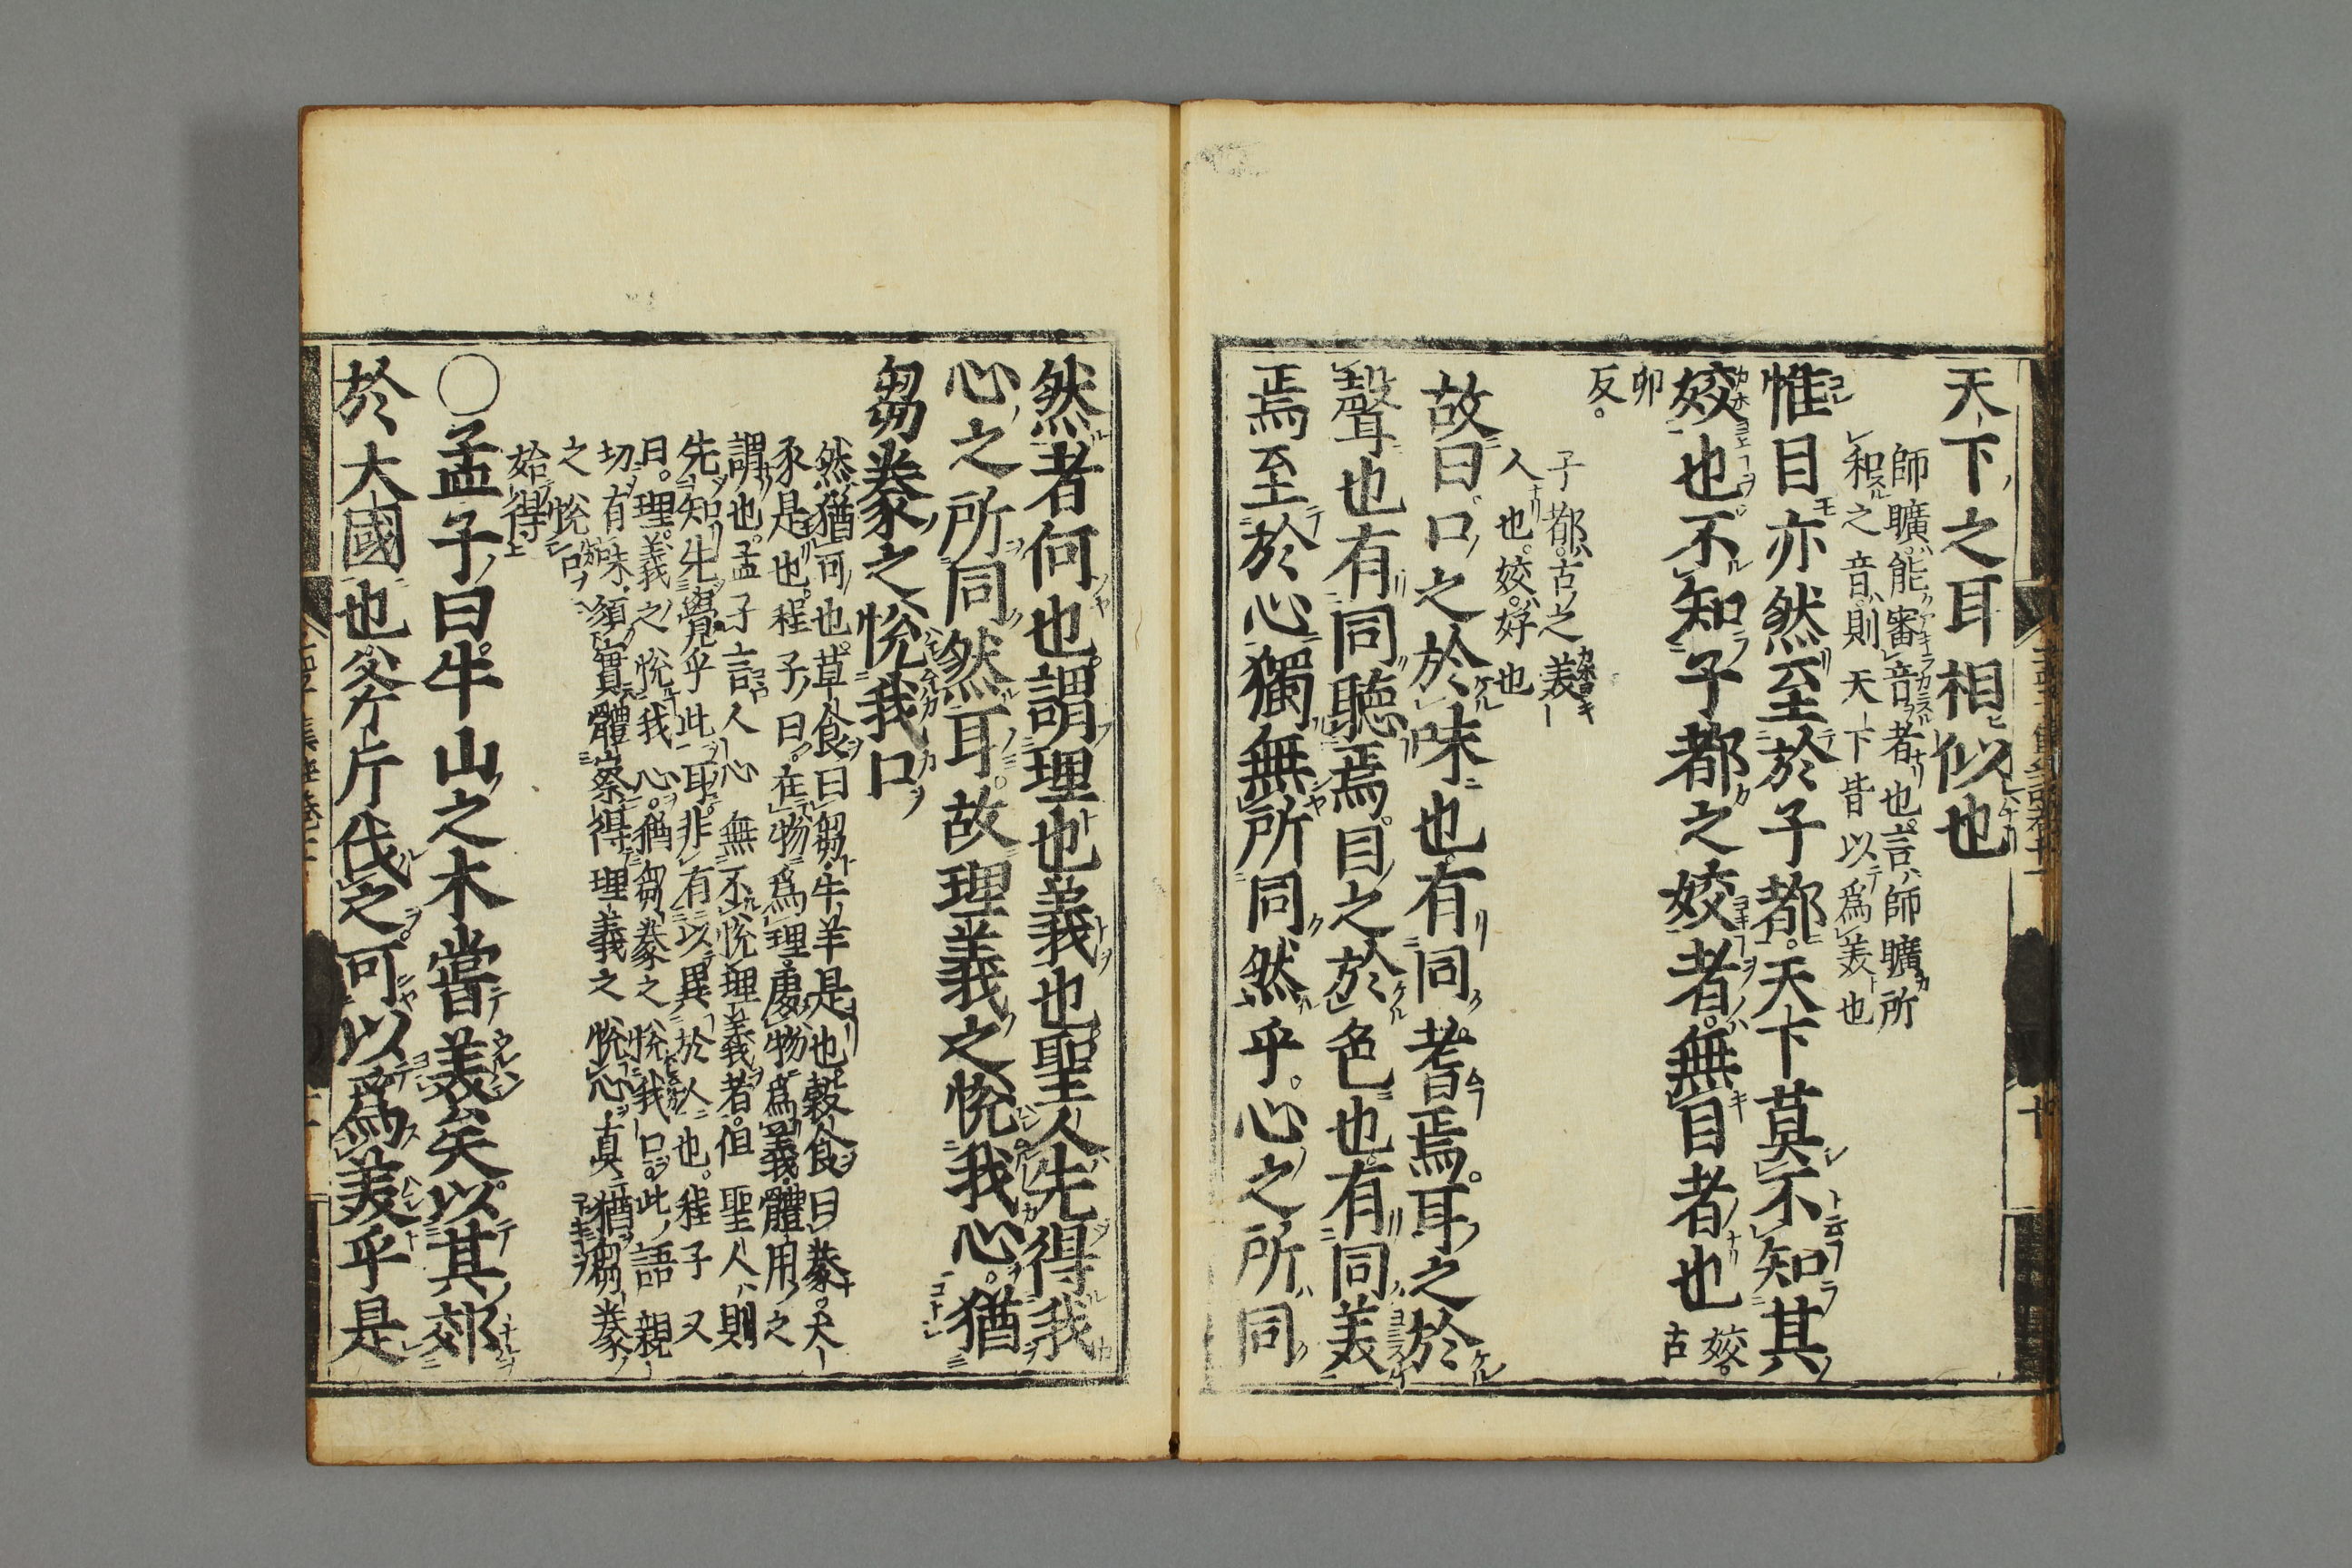 天下之耳相似也
師曠能審音者也言師曠所
和之音則天下皆以為美也
惟目亦然至於子都天下莫不知其
姣也不知子都之姣者無目者也姣古
卯
反
子都古之美
人也姣好也
故曰口之於味也有同耆焉耳之於
聲也有同聽焉目之於色也有同美
焉至於心獨無所同然乎心之所同
然者何也謂理也義也聖人先得我
心之所同然耳故理義之悅我心猶
芻豢之悅我口
然猶可也草食曰芻牛羊是也穀食曰豢犬
豕是也程子曰在物為理處物為義體用之
謂也孟子言人心無不悅理義者但聖人則
先知先覺乎此耳非有以異於人也程子又
曰理義之悅我心猶芻豢之悅我口此語親
切有味須實體察得理義之悅心真猶芻豢
之悅口
始得
○孟子曰牛山之木嘗美矣以其郊
於大國也斧斤伐之可以為美乎是